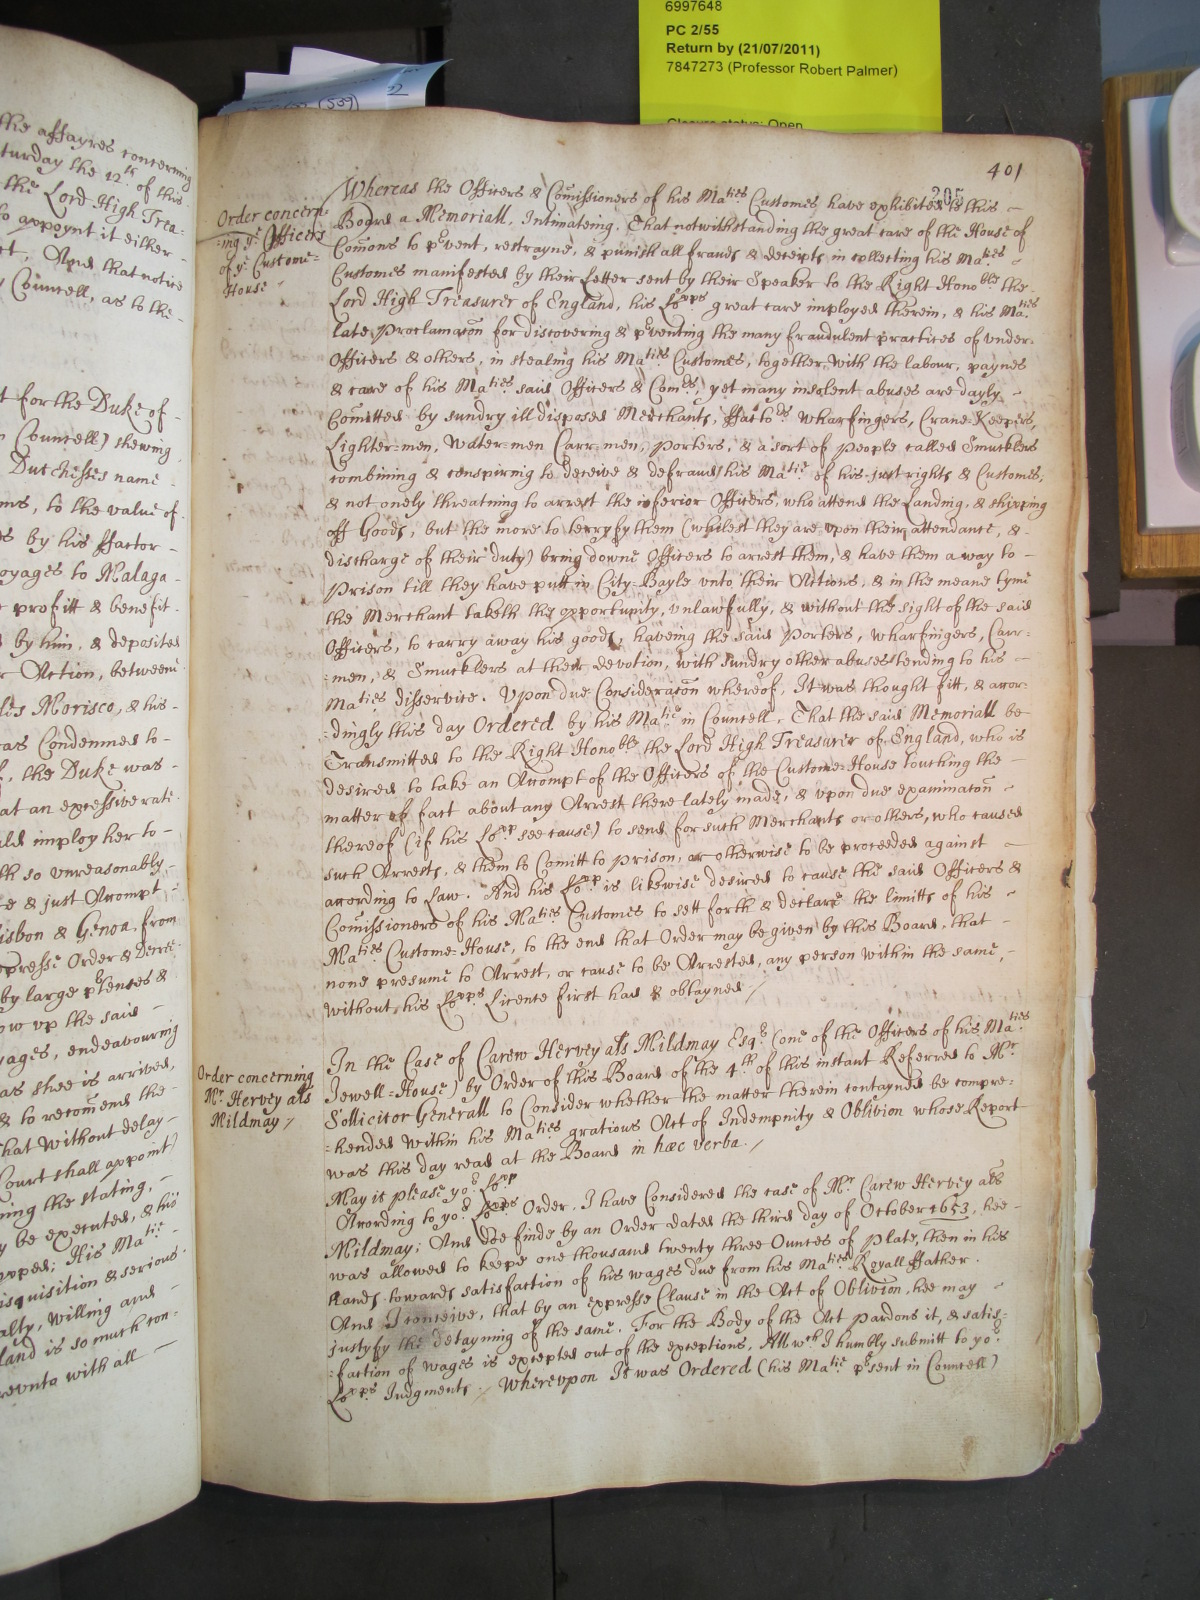 6997648
PC 2/55
Return by (21/07/2011)
7847273 (Professor Robert Palmer)
Closure status: Open
(539)
22
the affayres concerning
turday the 12th of this
the Lord High Trea-
to appoynt it either -
And that notice
Councell, as to the -
t for the Duke of -
Councell) shewing
Dutchesses name -
ms, to the value of
es by his ffactor -
oyages to Malaga -
profitt & benefit -
by him, & deposited
r Action, betweene
les Morisco, & his -
as Condemned to -
the Duke was -
at an excessive rate
ld imploy her to -
th so unreasonably -
e & just Accompt
isbon & Genoa, from
epresse Order & Direc=
by large pretenses &
ow up the said -
ages, endeavouring
as shee is arrived,
& to recomend the -
hat without delay -
Court shall appoint)
ing the stating, -
y be executed, & his
opped; His Matie -
isquisition & serious
alty, willing and
land is so much con-
reunto with all -
401
205
Order concern-
-ing ye Officers
of ye Custome=
House
Whereas the Officers & Comissioners of his Maties Customes have exhibited to this -
Board a Memoriall, Intimateing, That notwithstanding the great care of the House of
Comons to pevent, restrayne, & punish all frauds & deceipts in collecting his Maties -
Customes manifested by their Letter sent by their Speaker to the Right Honoble the -
Lord High Treasurer of England, his Lopps great care imployed therein, & his Maties
late Proclamacon for discovering & pventing the many fraudulent practices of vnder-
Officers & others, in stealing his Maties Customes, together with the labour, paynes
& care of his Maties said Officers & Comrs, yet many insolent abuses are dayly -
Comitted by sundry ill disposed Merchants, ffactors Wharfingers, Crane-Keepers,
Lighter=men, Water-men Carr-men, Porters, & a sort of People called Smucklers
combining & conspiring to deceive & defraud his Matie of his just rights & Customes;
& not onely threatning to arrest the inferior Officers, who attend the Landing, & shipping
off Goods, but the more to terryfy them (whilest they are vpon their attendance, & -
discharge of their duty) bring downe Officers to arrest them, & have them away to -
Prison till they have putt in City-Bayle vnto their Actions, & in the meane tyme
the Merchant taketh the opportunity, vnlawfully, & without the sight of the said
Officers, to carry away his goods, haveing the said Porters, Wharfingers, Carr-
=men, & Smucklers at their devotion, with sundry other abuses tending to his -
Maties disservice. Vpon due Consideracon whereof, It was thought fitt, & accor-
=dingly this day Ordered by his Matie in Councell, That the said Memoriall be
Transmitted to the Right Honoble the Lord High Treasurer of England, who is
desired to take an Accompt of the Officers of the Custome-House touching the -
matter of fact about any Arrest there lately made, & vpon due examinacon -
thereof (if his Lopp see cause) to send for such Merchants or others, who caused
such Arrests, & them to Comitt to Prison, or otherwise to be proceeded against -
according to Law. And his Lopp is likewise desired to cause the said Officers &
Comissioners of his Maties Customes to sett forth & declare the limitts of his -
Maties Custome-House, to the end that Order may be given by this Board, that -
none presume to Arrest, or cause to be Arrested, any person within the same, -
without his Lopps Licence first had & obtayned /
Order concerning
Mr Hervey als
Mildmay /
In the Case of Carew Hervey als Mildmay Esqr (one of the Officers of his Maties
Jewell=House) by Order of this Board of the 4th of this instant Referred to Mr
Sollicitor Generall to Consider whether the matter therein contayned be compre=
=hended within his Maties gratious Act of Indempnity & Oblivion whose Report
was this day read at the Board in hæc verba. /
May it please yor Lopp
According to yor Lopps Order, I have Considered the case of Mr Carew Hervey als
Mildmay; And doe finde by an Order dated the third day of October 1653, hee -
was allowed to keepe one thousand twenty three Ounces of Plate, then in his
hands towards satisfaction of his wages due from his Maties Royall ffather.
And I conceive, that by an expresse Clause in the Act of Oblivion, hee may -
justyfy the detayning of the same. For the Body of the Act pardons it, & satis=
=faction of wages is excepted out of the exceptions. All wch I humbly submitt to yor
Lopps Judgments / Wherevpon It was Ordered (his Matie psent in Councell)